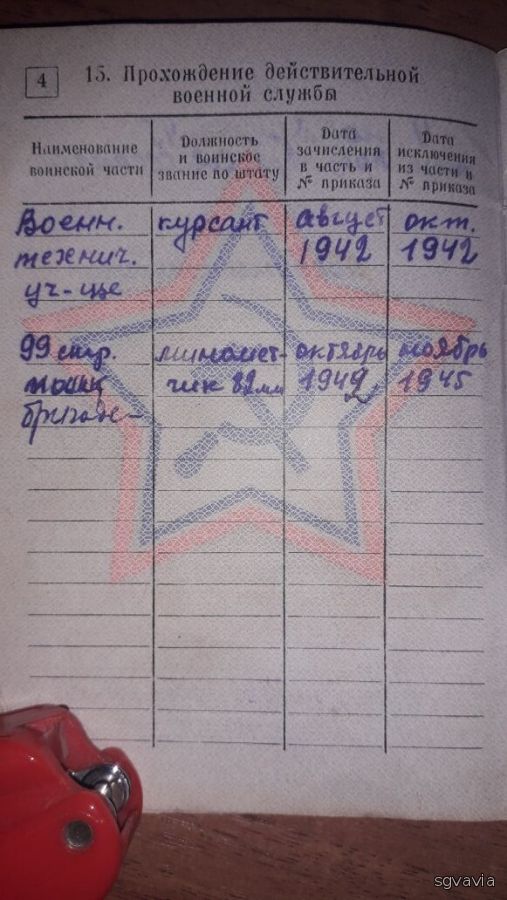 4
15. Прохождение действительной
военной службы
Наименование
воинской части
Должность
и воинское
звание по штату
Дата
зачисления
в часть и
№ приказа
Дата
исключения
из части и
№ приказа
Военн. курсант август окт.
технич. 1942 1942
уч-ще
99 стр. миномет- октябрь ноябрь
чик 82мм 1942 1945
sgvavia